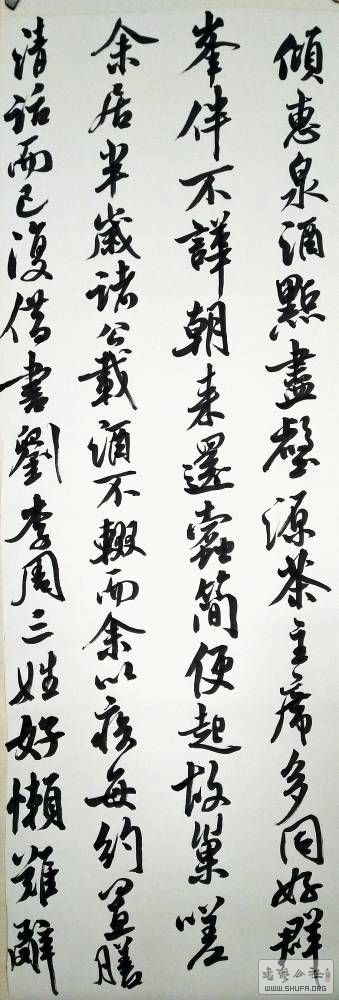 傾惠泉酒點盡壑源茶主席多同好群
峯伴不譁朝来還蠹簡便起故巢嗟
余居半歲諸公載酒不輟而余以疾每約置膳
清話而已復借書劉李周三姓好懶難辭
書藝公社
WWW.SHUFA.ORG